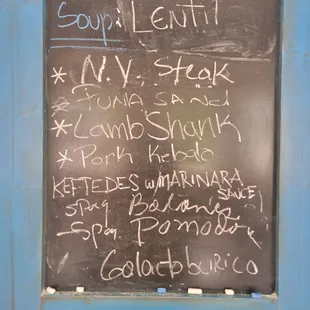 Soup: LENTIL
* N.Y. Steak
* TUNA SAND
* Lamb Shank
* Pork Kebob
KEFTEDES w/MARINARA
SAUCE
Spag
- Spag Pomodoro
Galactoburico